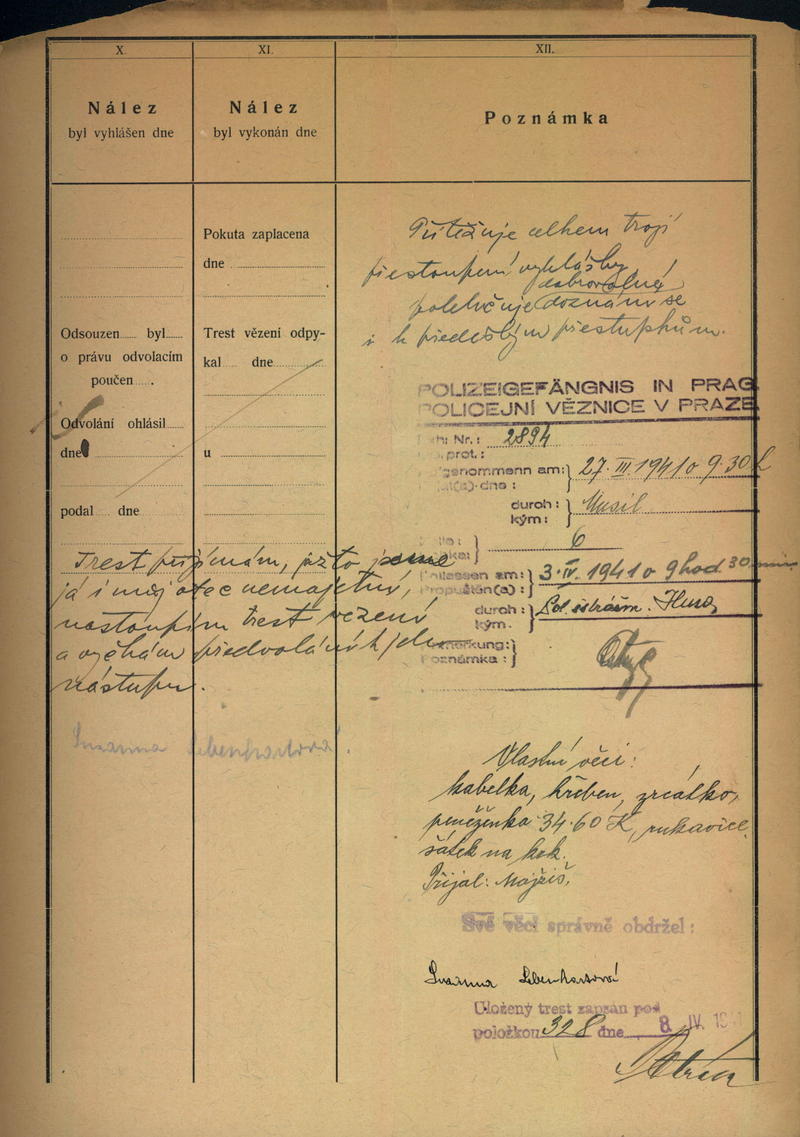 X.
Nález
byl vyhlášen dne
Odsouzen ...... byl ......
o právu odvolacím
poučen ...... .
Odvolání ohlásil ......
dne
podal ...... dne
XI.
Nález
byl vykonán dne
Pokuta zaplacena
dne
Trest vězení odpy-
kal ...... dne
u
Trest přijímám, ježto jsme
já i můj otec nemajetní,
nastoupím trest vězení
a vyčkám předvolání k jeho
nástupu.
Susanna Lebenhartová.
XII.
Poznámka
Přitěžuje celkem trojí
přestoupení vyhlášky
polehčuje dobrovolné doznání se
i k předešlým přestupkům.
POLIZEIGEFÄNGNIS IN PRAG
POLICEJNÍ VĚZNICE V PRAZE
Nr.: 2894
prot.:
genommenn am: 27. III. 1941 o 9.30 h
dne:
durch: Musil
kým:
6
Entlassen am: 3. IV. 1941 o 9 hod 30 min
Propuštěn(a):
durch: Pol. strážm. Husa
kým.
merkung:
Poznámka:
Vlastní věci:
kabelka, hřeben, zrcátko,
peněženka 34.60 K, rukavice,
šátek na krk.
Přijal: Mojžíš.
Své věci správně obdržel:
Susanna Lebenhartová
Uložený trest zapsán pod
položkou 328 dne 8. IV. 19